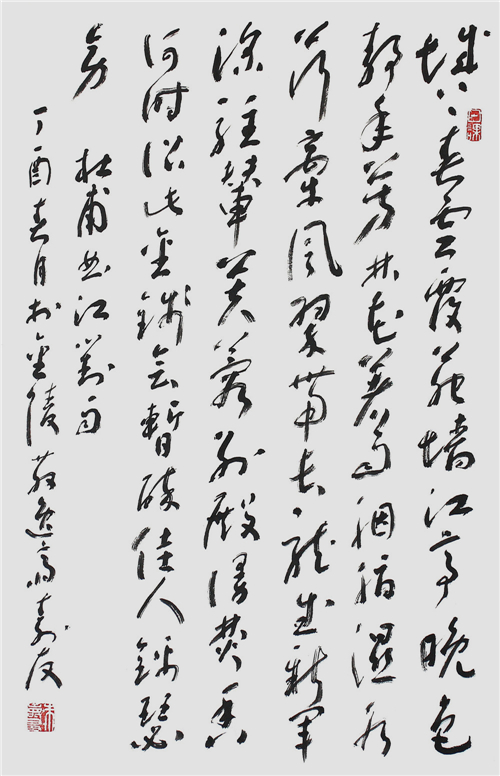 城上春雲覆苑墙江亭晚色
静年芳林花著雨胭脂濕水
荇牽風翠帶長龍武新軍
深駐輦芙蓉別殿漫焚香
何時詔此金錢會暫醉佳人錦瑟
旁 杜甫曲江對雨
丁酉春月於金陵逸齋嘉友